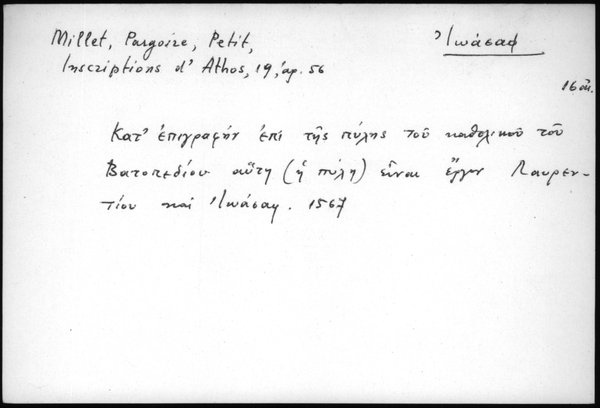 Millet, Pargoire, Petit,
Inscriptions d'Athos, 19, ἀρ. 56
Ἰωάσαφ
16 αἰ.
Κατ' ἐπιγραφήν ἐπί τῆς πύλης τοῦ καθολικοῦ τοῦ
Βατοπεδίου αὕτη (ἡ πύλη) εἶναι ἔργον Λαυρεν-
τίου καί Ἰωάσαφ. 1567